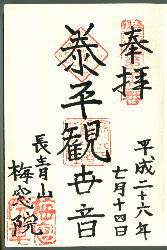 奉拝
平成二十八年
七月十四日
泰平観世音
長青山
梅窓院